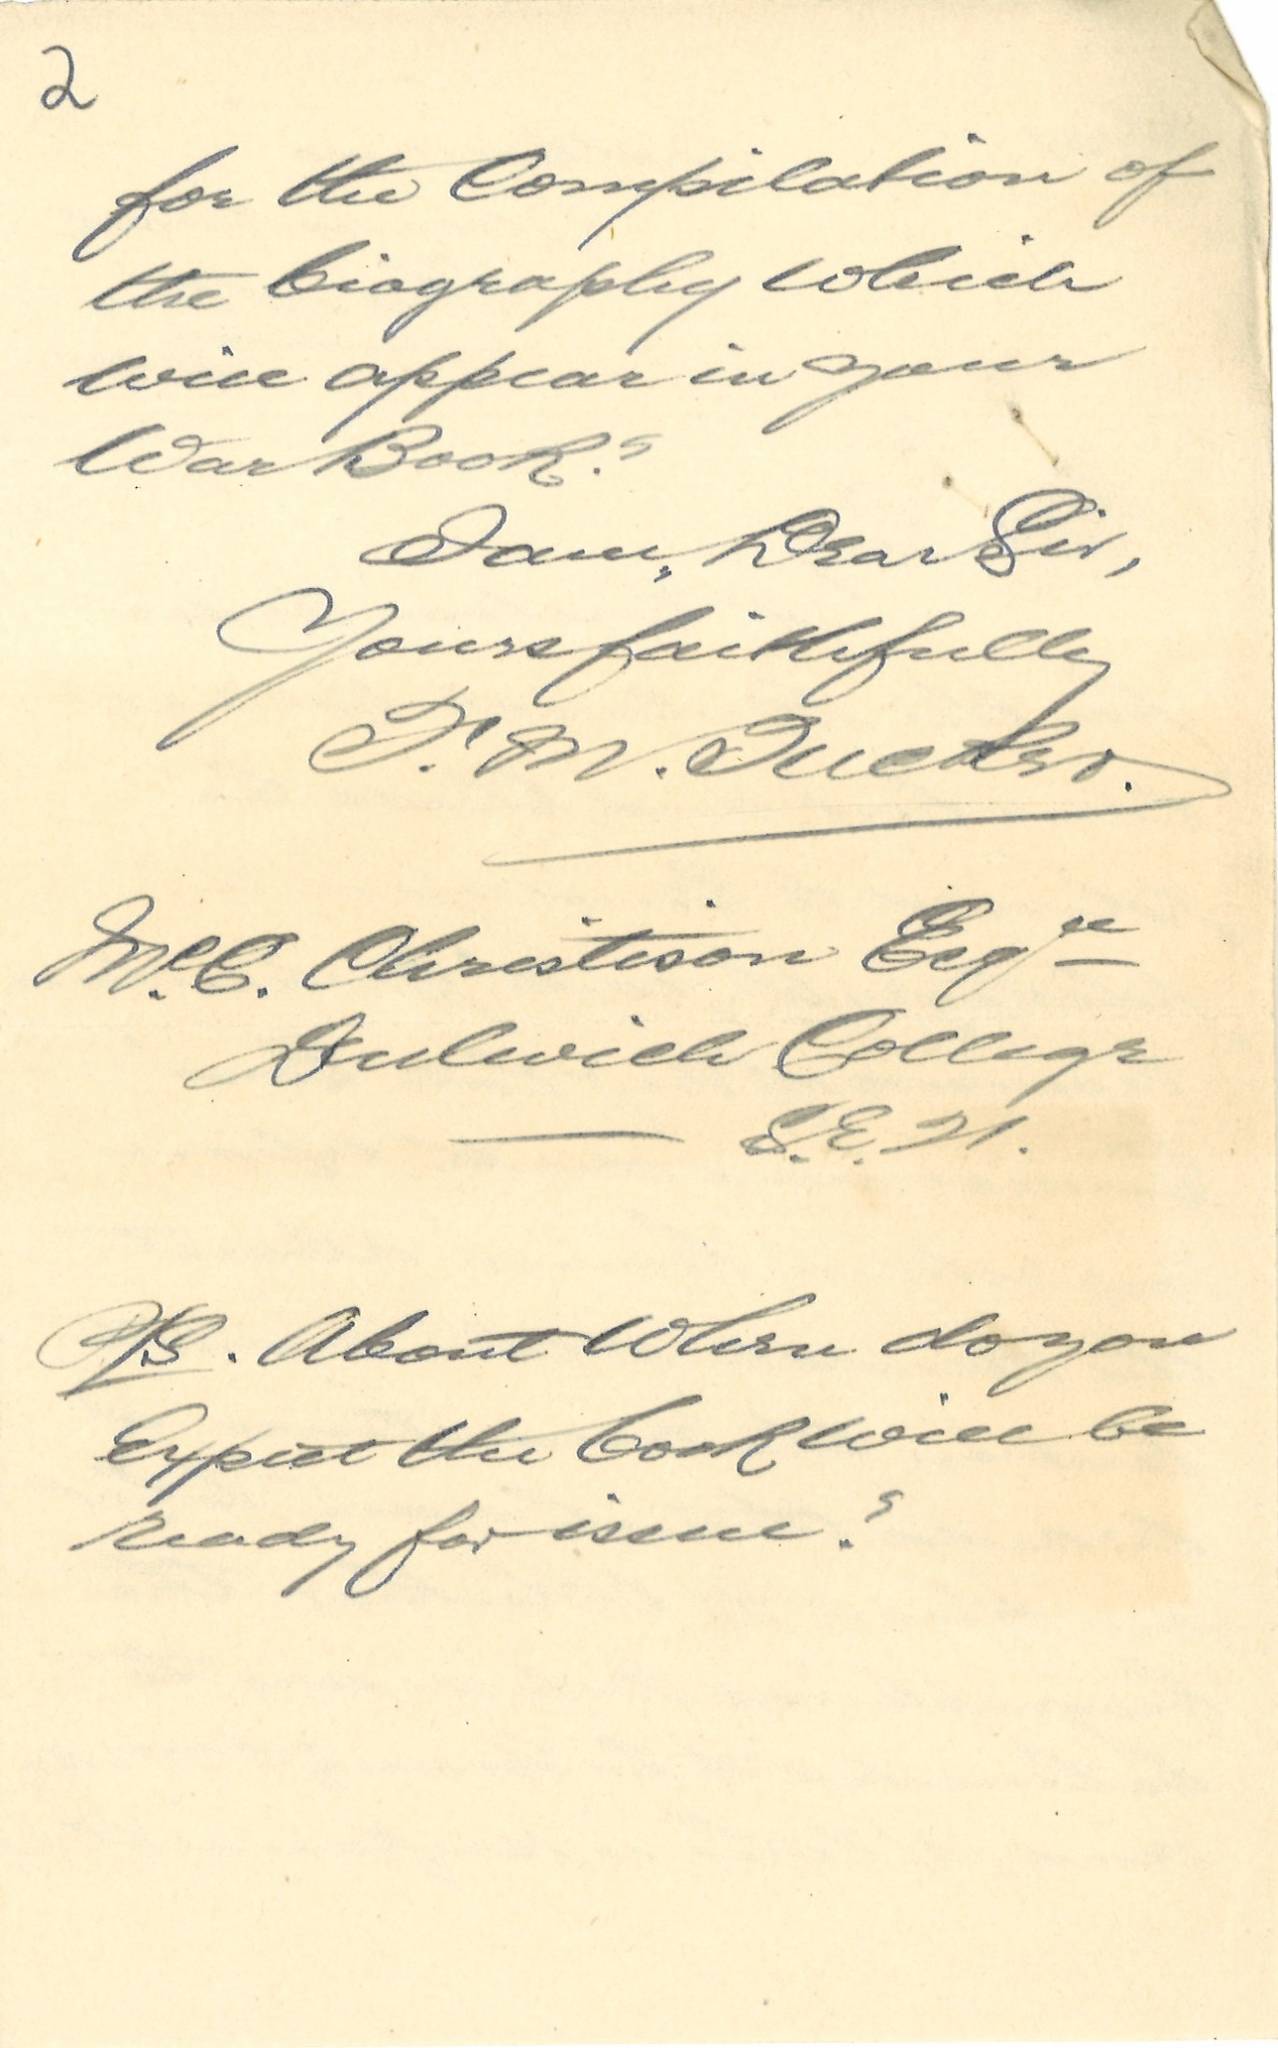 2
for the Compilation of
the biography which
will appear in your
War Book?
I am, Dear Sir,
Yours faithfully
F. M. Tucker.
McC. Christison Esqre
Dulwich College
S.E. 21.
P/S. About when do you
expect the book will be
ready for issue?